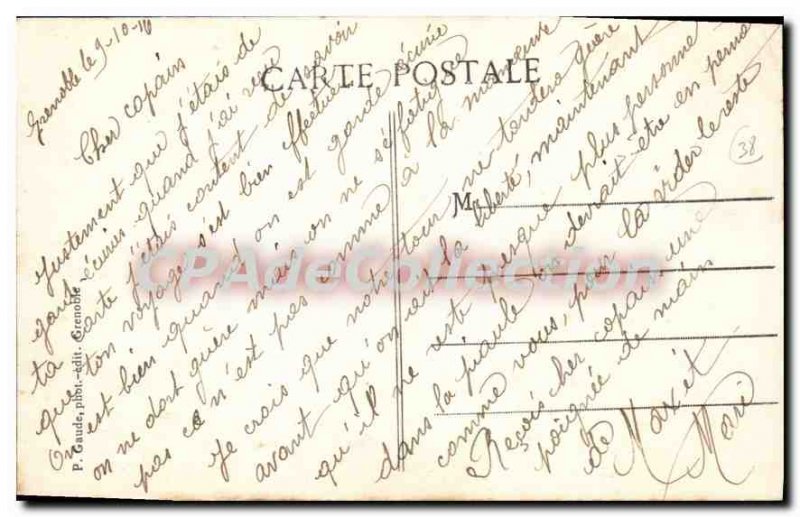 CARTE POSTALE
Grenoble le 9-10-10
Cher copain
Justement que j'étais de
garde écurie quand j'ai reçu
ta carte j'étais content de savoir
que ton voyage s'est bien effectué
On est bien quand on est garde écurie
on ne dort guère mais on ne se fatigue
pas ce n'est pas comme à la manœuvre
Je crois que notre tour ne tardera guère
avant qu'on eut la liberté, maintenant
qu'il ne reste presque plus personne
dans la piaule on devrait être en perm
comme vous, pour la vider le reste
Reçois cher copain une
poignée de main
de Max et
Mari
M
38
P. Gaude, phot.-édit. Grenoble
CPADeCollection